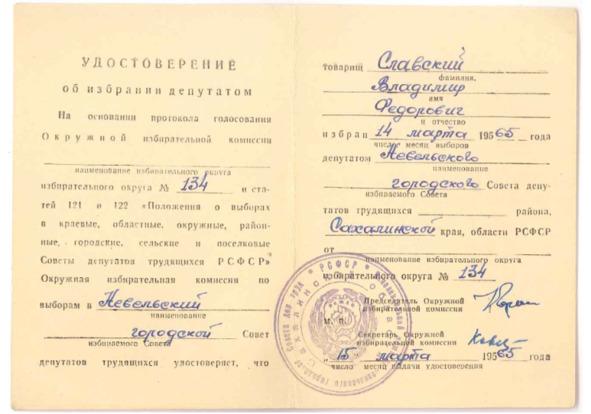 УДОСТОВЕРЕНИЕ
об избрании депутатом
На основании протокола голосования
Окружной избирательной комиссии
наименование избирательного округа
избирательного округа № 134 и ста-
тей 121 и 122 «Положения о выборах
в краевые, областные, окружные, район-
ные, городские, сельские и поселковые
Советы депутатов трудящихся РСФСР»
Окружная избирательная комиссия по
выборам в Невельский
наименование
городской Совет
избираемого Совета
депутатов трудящихся удостоверяет, что
товарищ Славский
фамилия,
Владимир
имя
Федорович
и отчество
избран 14 марта 195665 года
число месяц выборов
депутатом Невельского
наименование
городского Совета депу-
избираемого Совета
татов трудящихся района,
Сахалинской края, области РСФСР
от
наименование избирательного округа
избирательного округа № 134
Председатель Окружной
избирательной комиссии
м. п.
Секретарь Окружной
избирательной комиссии
"15" марта 195665 года
число месяц выдачи удостоверения
РСФСР